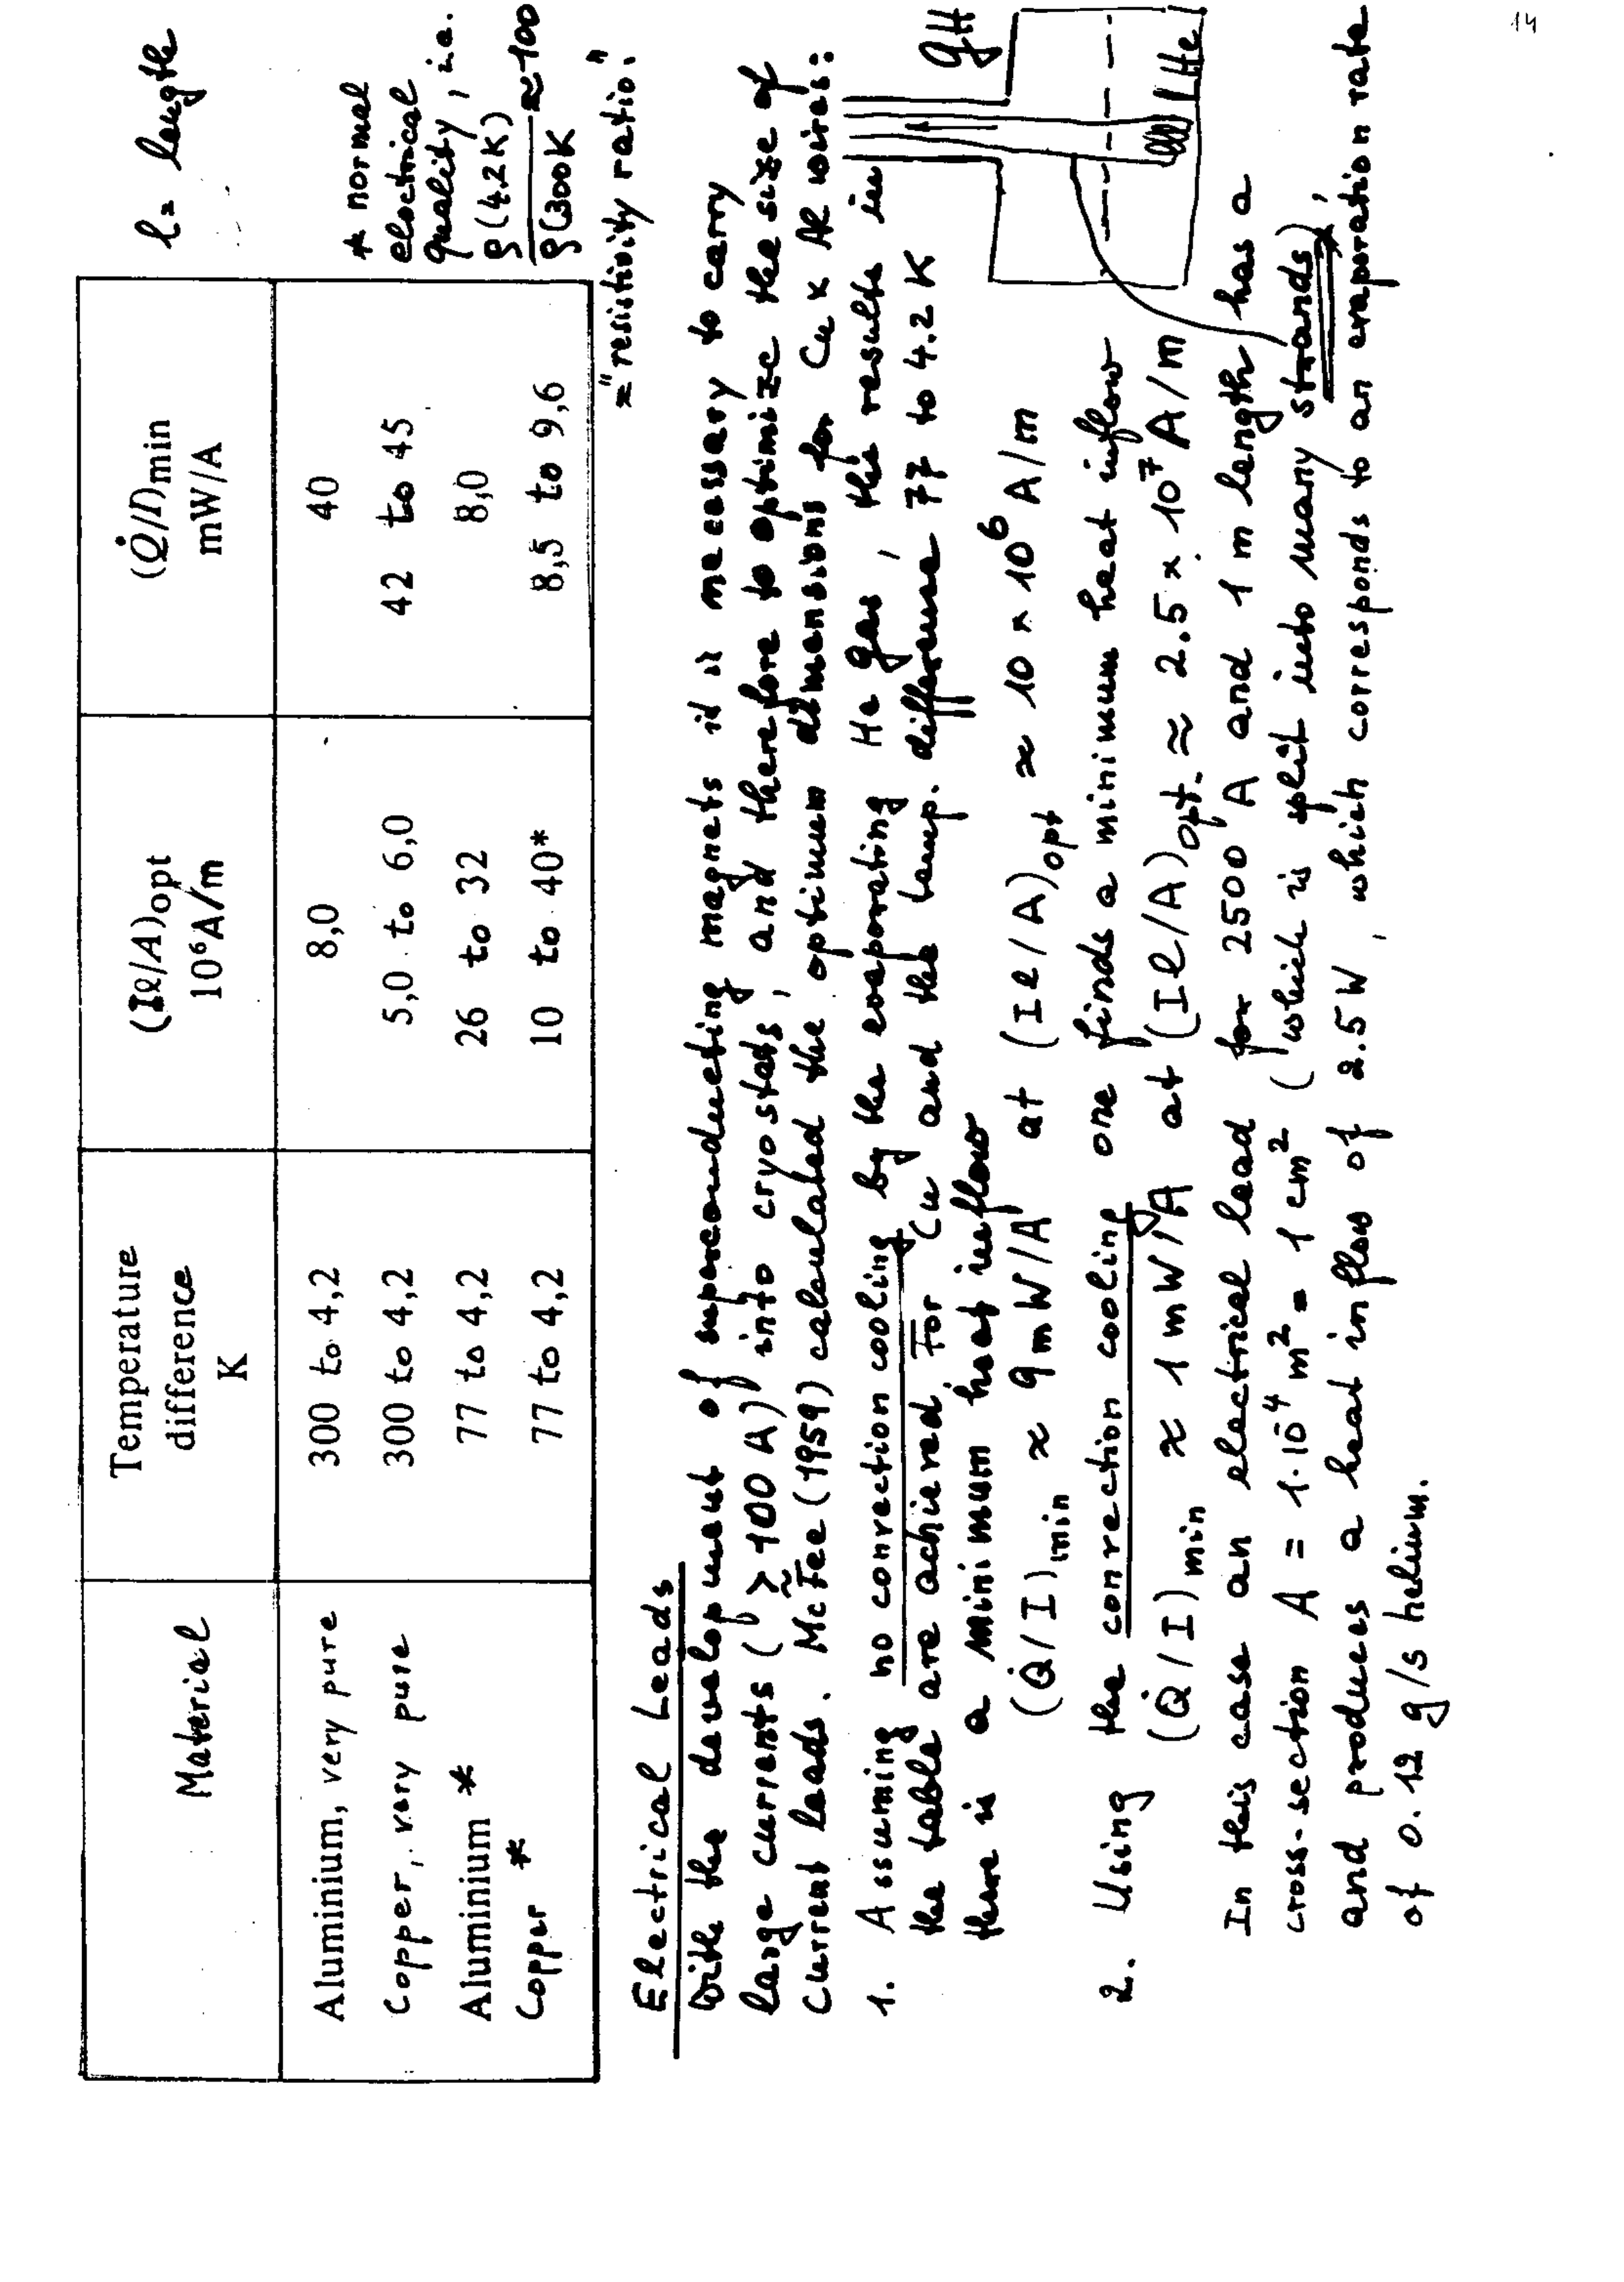 Material | Temperature difference K | (Iℓ/A)opt 10⁶A/m | (Q̇/I)min mW/A
Aluminium, very pure | 300 to 4,2 | 8,0 | 40
Copper, very pure | 300 to 4,2 | 5,0 to 6,0 | 42 to 45
Aluminium * | 77 to 4,2 | 26 to 32 | 8,0
Copper * | 77 to 4,2 | 10 to 40* | 8,5 to 9,6
l = length
* normal
electrical
quality, i.e.
ρ(4.2K)
ρ(300K ≈ 100
≈ "resistivity ratio."
Electrical Leads
With the development of superconducting magnets it is necessary to carry
large currents (≳ 100 A) into cryostats, and therefore to optimize the size of
current leads. McFee (1959) calculated the optimum dimensions for Cu x Al wires:
1. Assuming no convection cooling by the evaporating He gas, the results in
the table are achieved. For Cu and the temp. difference 77 to 4.2 K
there is a minimum heat inflow
(Q̇/I)min ≈ 9 mW/A at (Iℓ/A)opt ≈ 10 × 10⁶ A/m
2. Using the convection cooling one finds a minimum heat inflow
(Q̇/I)min ≈ 1 mW/A at (Iℓ/A)opt. ≈ 2.5 × 10⁷ A/m
In this case an electrical lead for 2500 A and 1 m length has a
cross-section A = 1·10⁻⁴ m² = 1 cm² (which is split into many strands),
and produces a heat inflow of 2.5 W, which corresponds to an evaporation rate
of 0.12 g/s helium.
lHe
14